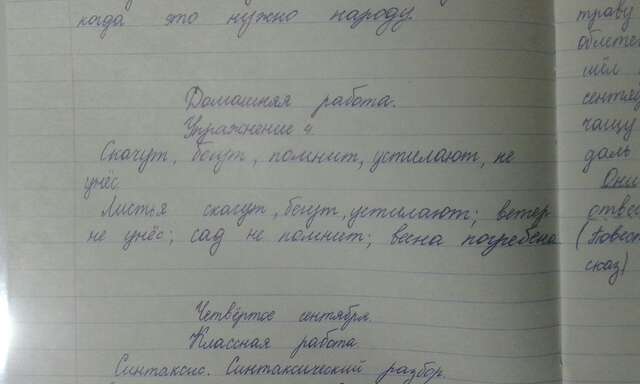 когда это нужно народу.
Домашняя работа.
Упражнение 4.
Скачут, бегут, помнит, устилают, не
унёс
Листья скачут, бегут, устилают; ветер
не унёс; сад не помнит; весна погребена
Четвёртое сентября.
Классная работа
Синтаксис. Синтаксический разбор.
траву
облете
шёл
сентя
чащу
даль
Они
отвес
(Повест
сказ)